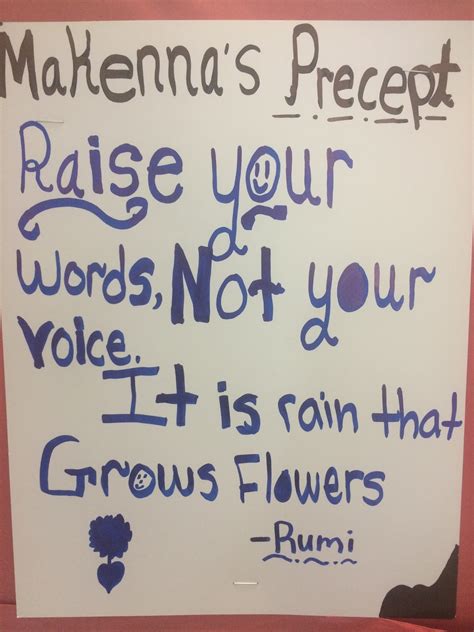 Makenna's Precept
Raise your
words, Not your
voice.
It is rain that
Grows Flowers
-Rumi